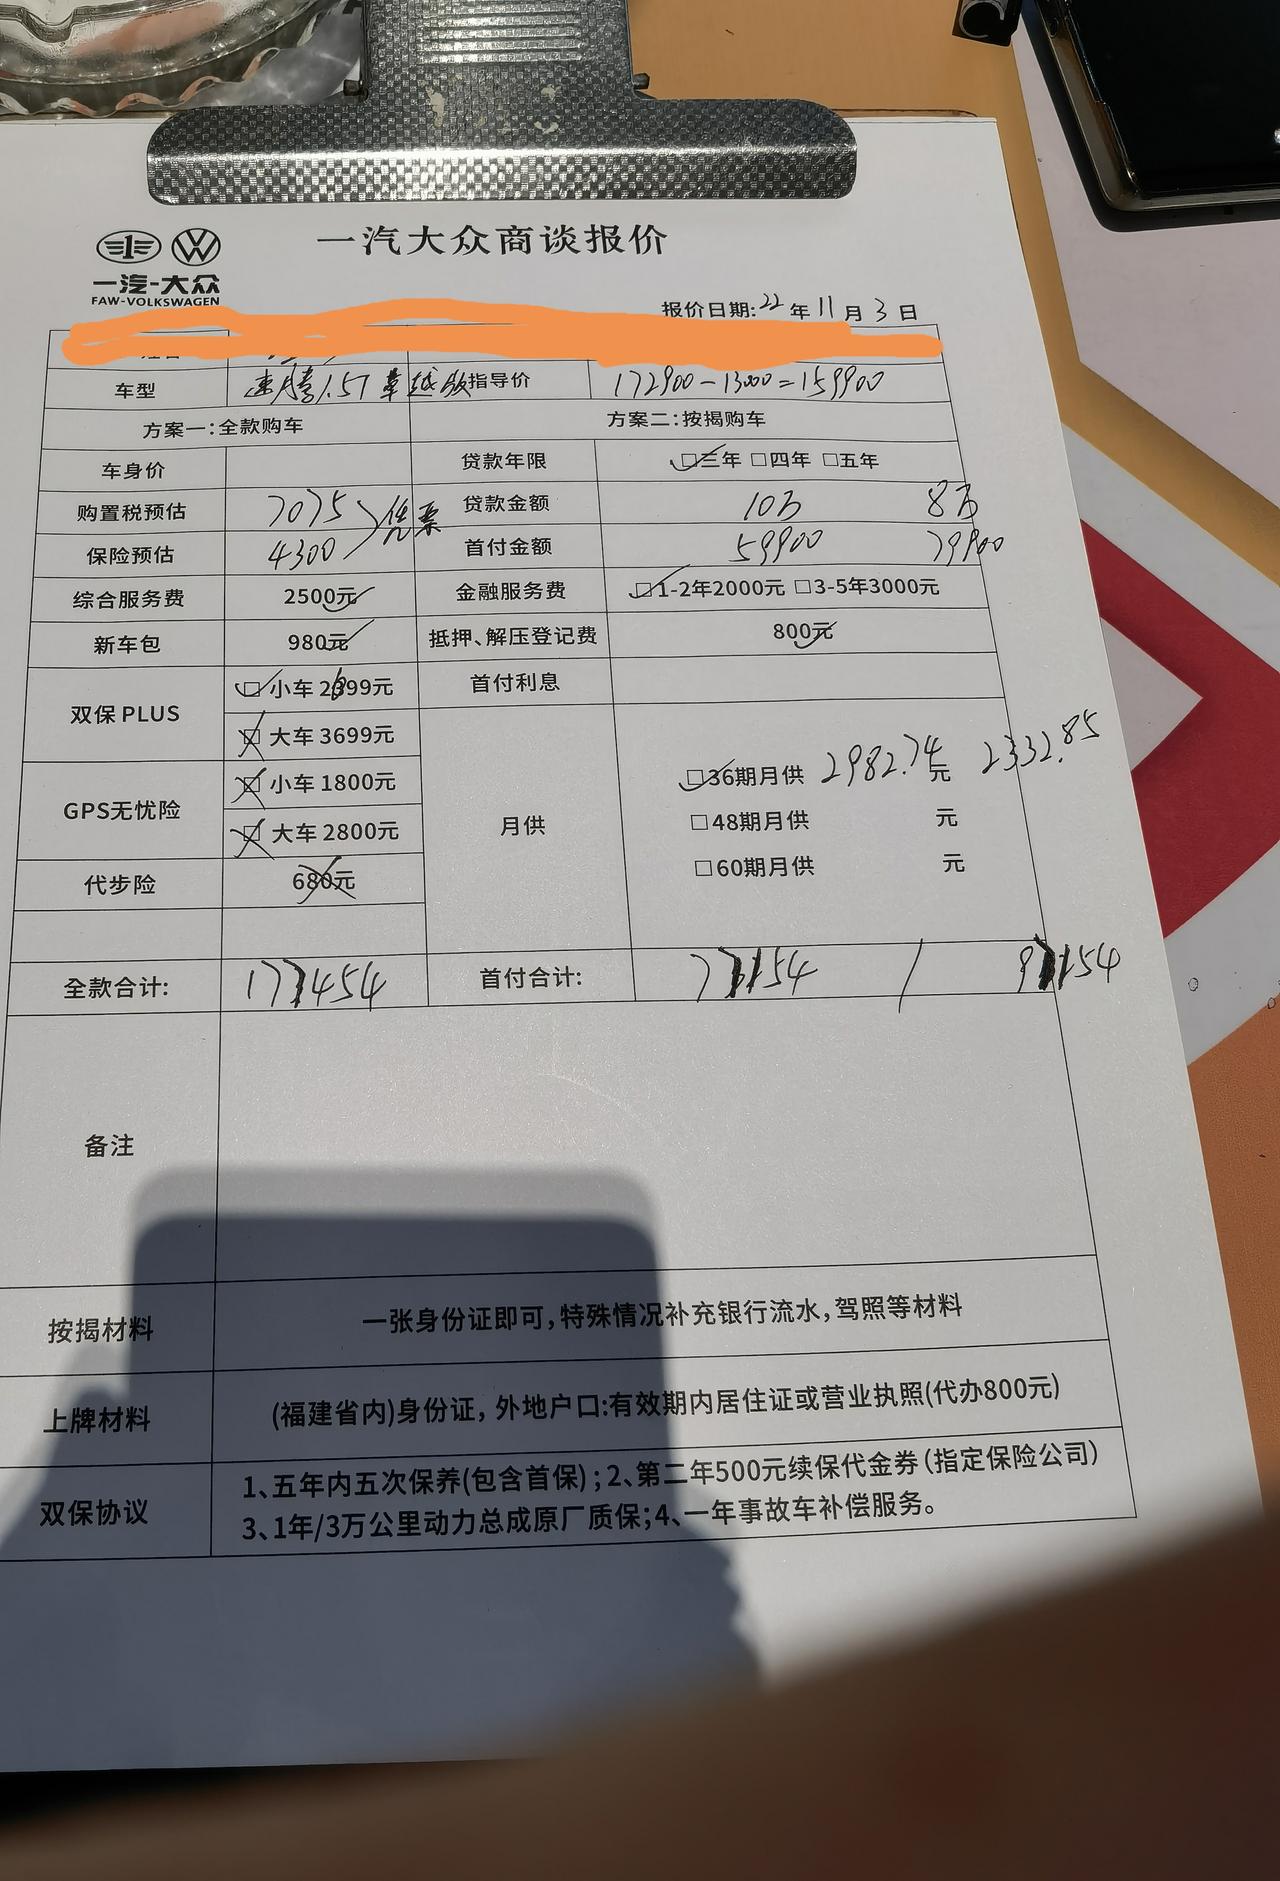 一汽-大众
FAW-VOLKSWAGEN
一汽大众商谈报价
报价日期:22年11月3日
车型 速腾1.5T 卓越版 指导价 172900-13000=159900
方案一:全款购车 方案二:按揭购车
车身价 贷款年限 □三年 □四年 □五年
购置税预估 7075 凭票 贷款金额 10万 8万
保险预估 4300 首付金额 59900 79900
综合服务费 2500元 金融服务费 □1-2年2000元 □3-5年3000元
新车包 980元 抵押、解压登记费 800元
双保 PLUS □小车 2699元 首付利息
□大车 3699元
GPS无忧险 □小车 1800元 月供 □36期月供 2982.74元 2332.85
□大车 2800元 □48期月供 元
代步险 680元 □60期月供 元
全款合计: 177454 首付合计: 77154 / 97154
备注
按揭材料 一张身份证即可,特殊情况补充银行流水,驾照等材料
上牌材料 (福建省内)身份证,外地户口:有效期内居住证或营业执照(代办800元)
双保协议 1、五年内五次保养(包含首保);2、第二年500元续保代金券(指定保险公司)
3、1年/3万公里动力总成原厂质保;4、一年事故车补偿服务。